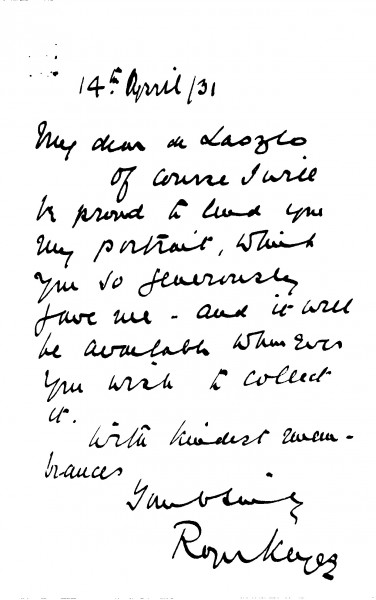 14th April/31
My dear de Laszlo
Of course I will
be proud to lend you
my portrait, which
you so generously
gave me - and it will
be available whenever
you wish to collect
it.
With kindest remem-
brances
Yours sincerely
Roger Keyes